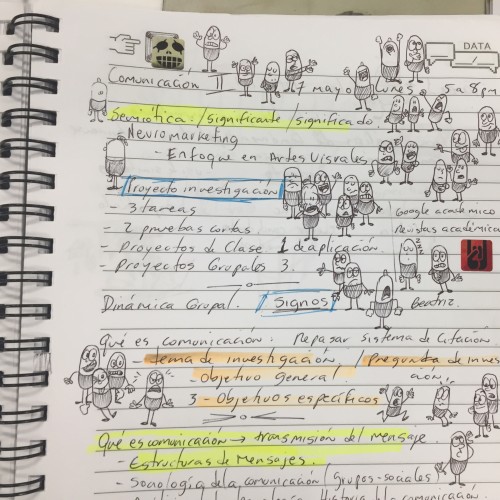 DATA
Comunicación II 7 mayo Lunes 5 a 8pm
Semiótica: / significante / significado.
- Neuromarketing
- Enfoque en Artes Visuales
Proyecto investigación
- 3 tareas
Google académico
- 2 pruebas cortas
revistas académica
- Proyectos de Clase 1 de aplicación
- Proyectos Grupales 3.
Dinámica Grupal. Signos Beatriz.
Qué es comunicación: Repasar Sistema de Citación
- tema de investigación / pregunta de inves
- Objetivo general. ación
3 - Objetivos específicos
Qué es comunicación → transmisión del mensaje
- Estructuras de Mensajes.
- Sociología de la comunicación / grupos-sociales /
historia de la comunicación